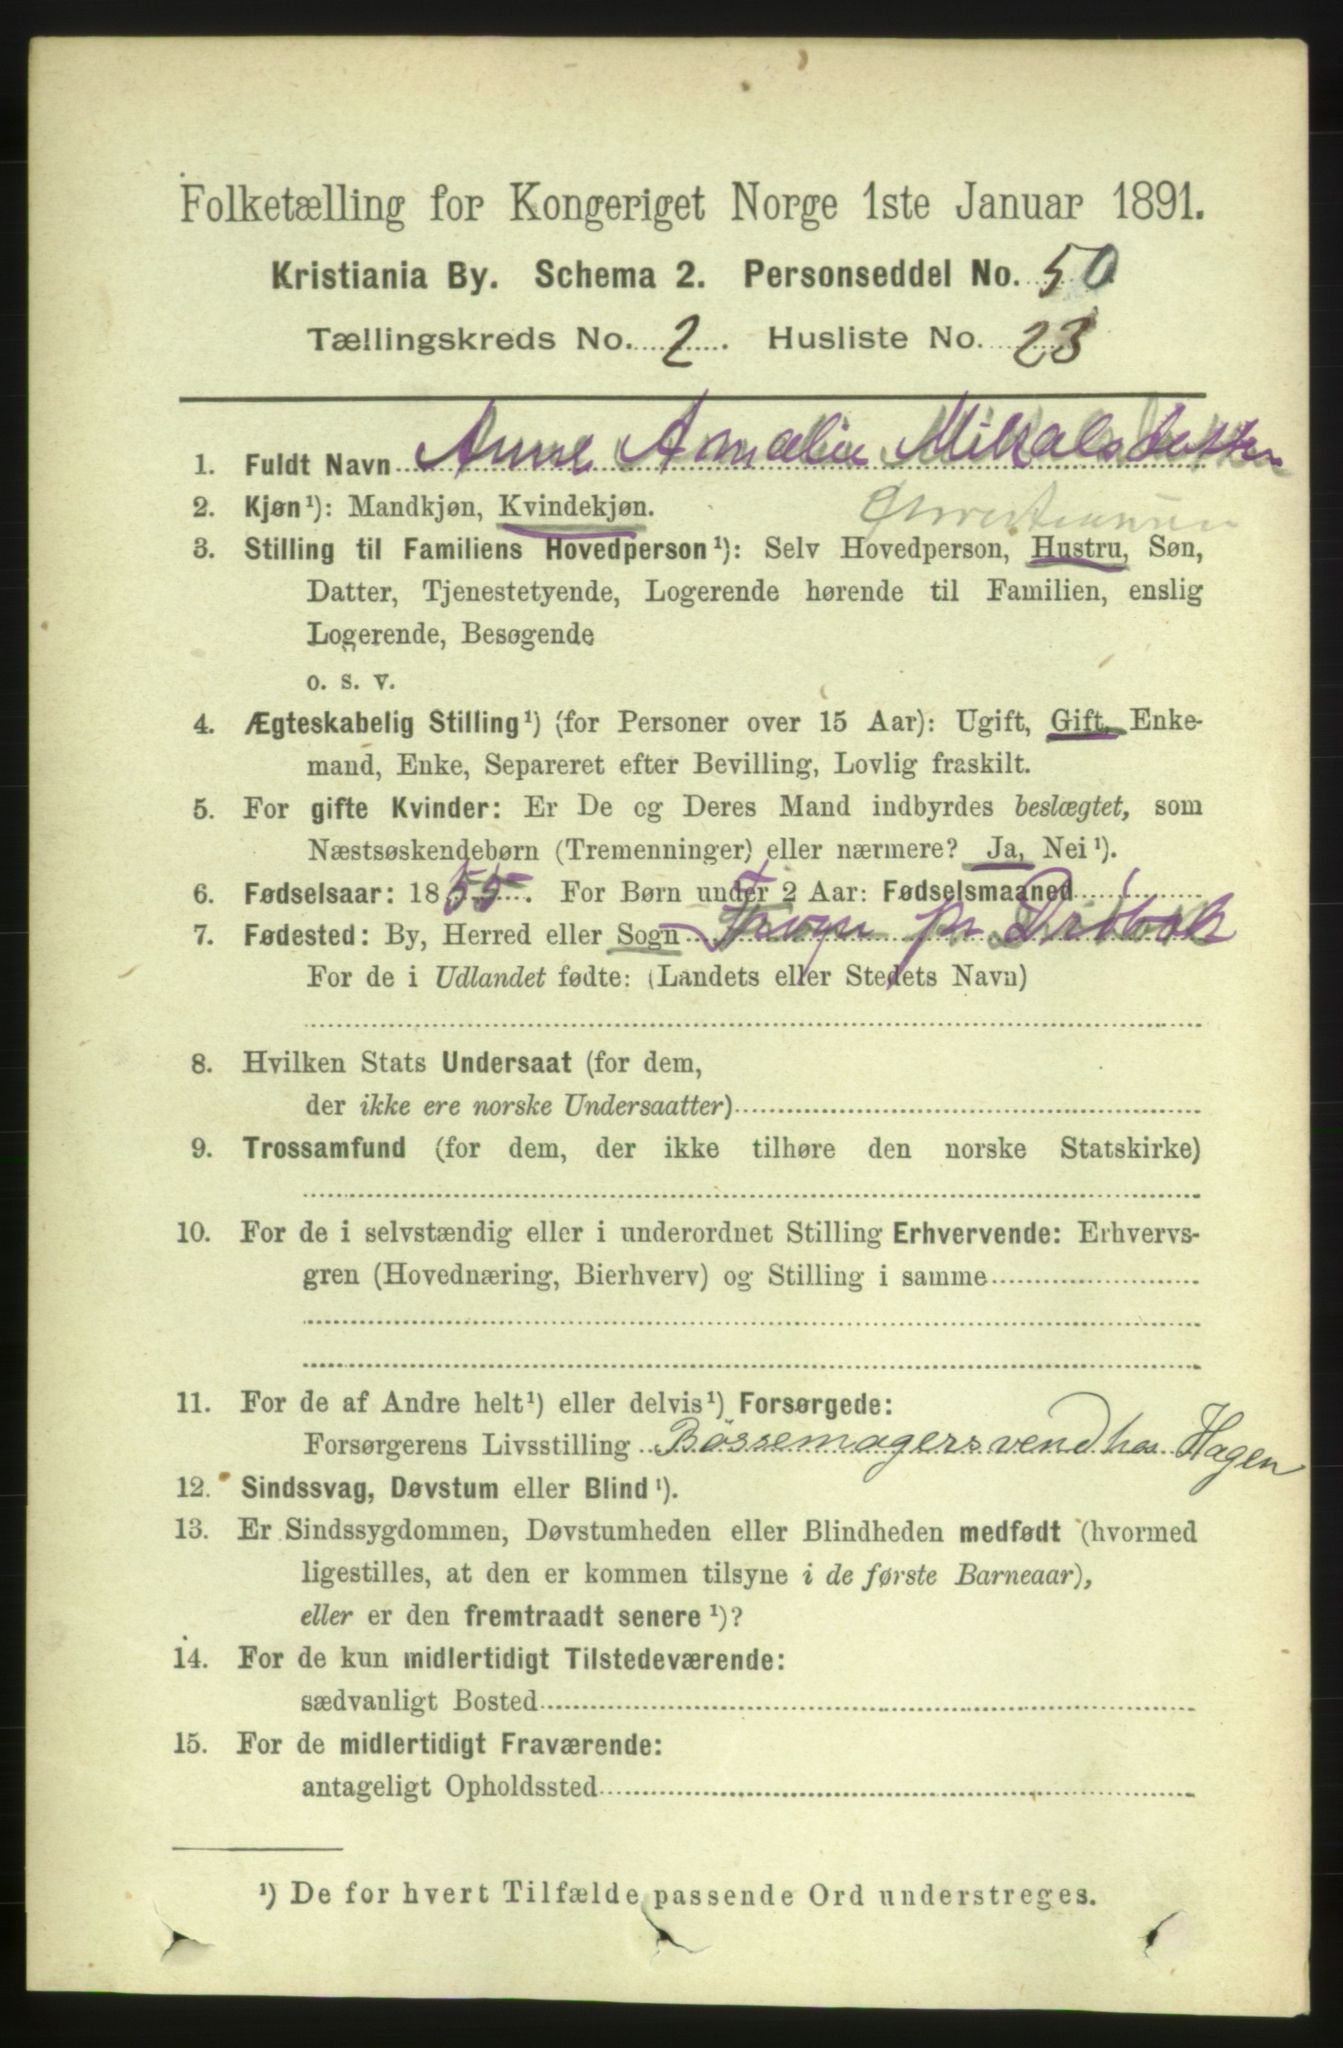 Folketælling for Kongeriget Norge 1ste Januar 1891.
Kristiania By. Schema 2. Personseddel No. 50
Tællingskreds No. 2. Husliste No. 23
1. Fuldt Navn Anne Amalie Mikalsdatter
2. Kjøn¹): Mandkjøn, Kvindekjøn.
3. Stilling til Familiens Hovedperson¹): Selv Hovedperson, Hustru, Søn,
Datter, Tjenestetyende, Logerende hørende til Familien, enslig
Logerende, Besøgende
o. s. v.
4. Ægteskabelig Stilling¹) (for Personer over 15 Aar): Ugift, Gift, Enke-
mand, Enke, Separeret efter Bevilling, Lovlig fraskilt.
5. For gifte Kvinder: Er De og Deres Mand indbyrdes beslægtet, som
Næstsøskendebørn (Tremenninger) eller nærmere? Ja, Nei¹).
6. Fødselsaar: 1855. For Børn under 2 Aar: Fødselsmaaned
7. Fødested: By, Herred eller Sogn Frogn pr Drøbak
For de i Udlandet fødte: (Landets eller Stedets Navn)
8. Hvilken Stats Undersaat (for dem,
der ikke ere norske Undersaatter)
9. Trossamfund (for dem, der ikke tilhøre den norske Statskirke)
10. For de i selvstændig eller i underordnet Stilling Erhvervende: Erhvervs-
gren (Hovednæring, Bierhverv) og Stilling i samme
11. For de af Andre helt¹) eller delvis¹) Forsørgede:
Forsørgerens Livsstilling Bössemagersvend hos Hagen
12. Sindssvag, Døvstum eller Blind¹).
13. Er Sindssygdommen, Døvstumheden eller Blindheden medfødt (hvormed
ligestilles, at den er kommen tilsyne i de første Barneaar),
eller er den fremtraadt senere¹)?
14. For de kun midlertidigt Tilstedeværende:
sædvanligt Bosted
15. For de midlertidigt Fraværende:
antageligt Opholdssted
¹) De for hvert Tilfælde passende Ord understreges.